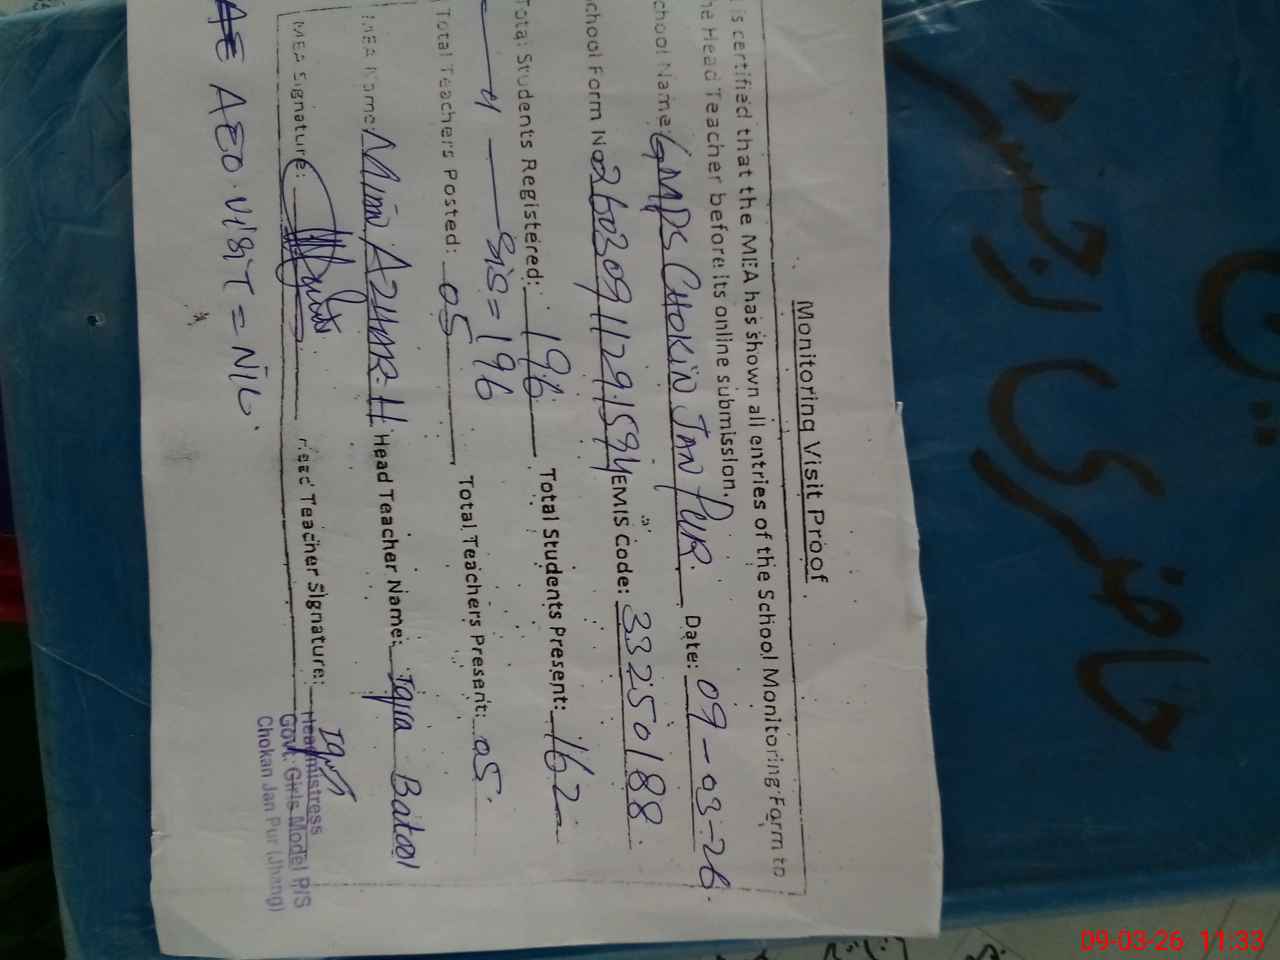 Monitoring Visit Proof
is certified that the MEA has shown all entries of the School Monitoring Form to
he Head Teacher before its online submission.
chool Name: GMPS CHOKIN JAN PUR. Date: 09-03-26.
chool Form No 26030911291594 EMIS Code: 33250188.
Total Students Registered: 196 Total Students Present: 162
SIS = 196
Total Teachers Posted: 05 Total Teachers Present: 05.
MEA Name: Mian AZHAR.H Head Teacher Name: Iqra Batool
MEA Signature: Head Teacher Signature: Iqra
Headmistress
Govt: Girls Model P/S
Chokan Jan Pur (Jhang)
AEO.ViSiT = NiL.
حاضری
رجسٹر
09-03-26 11:33